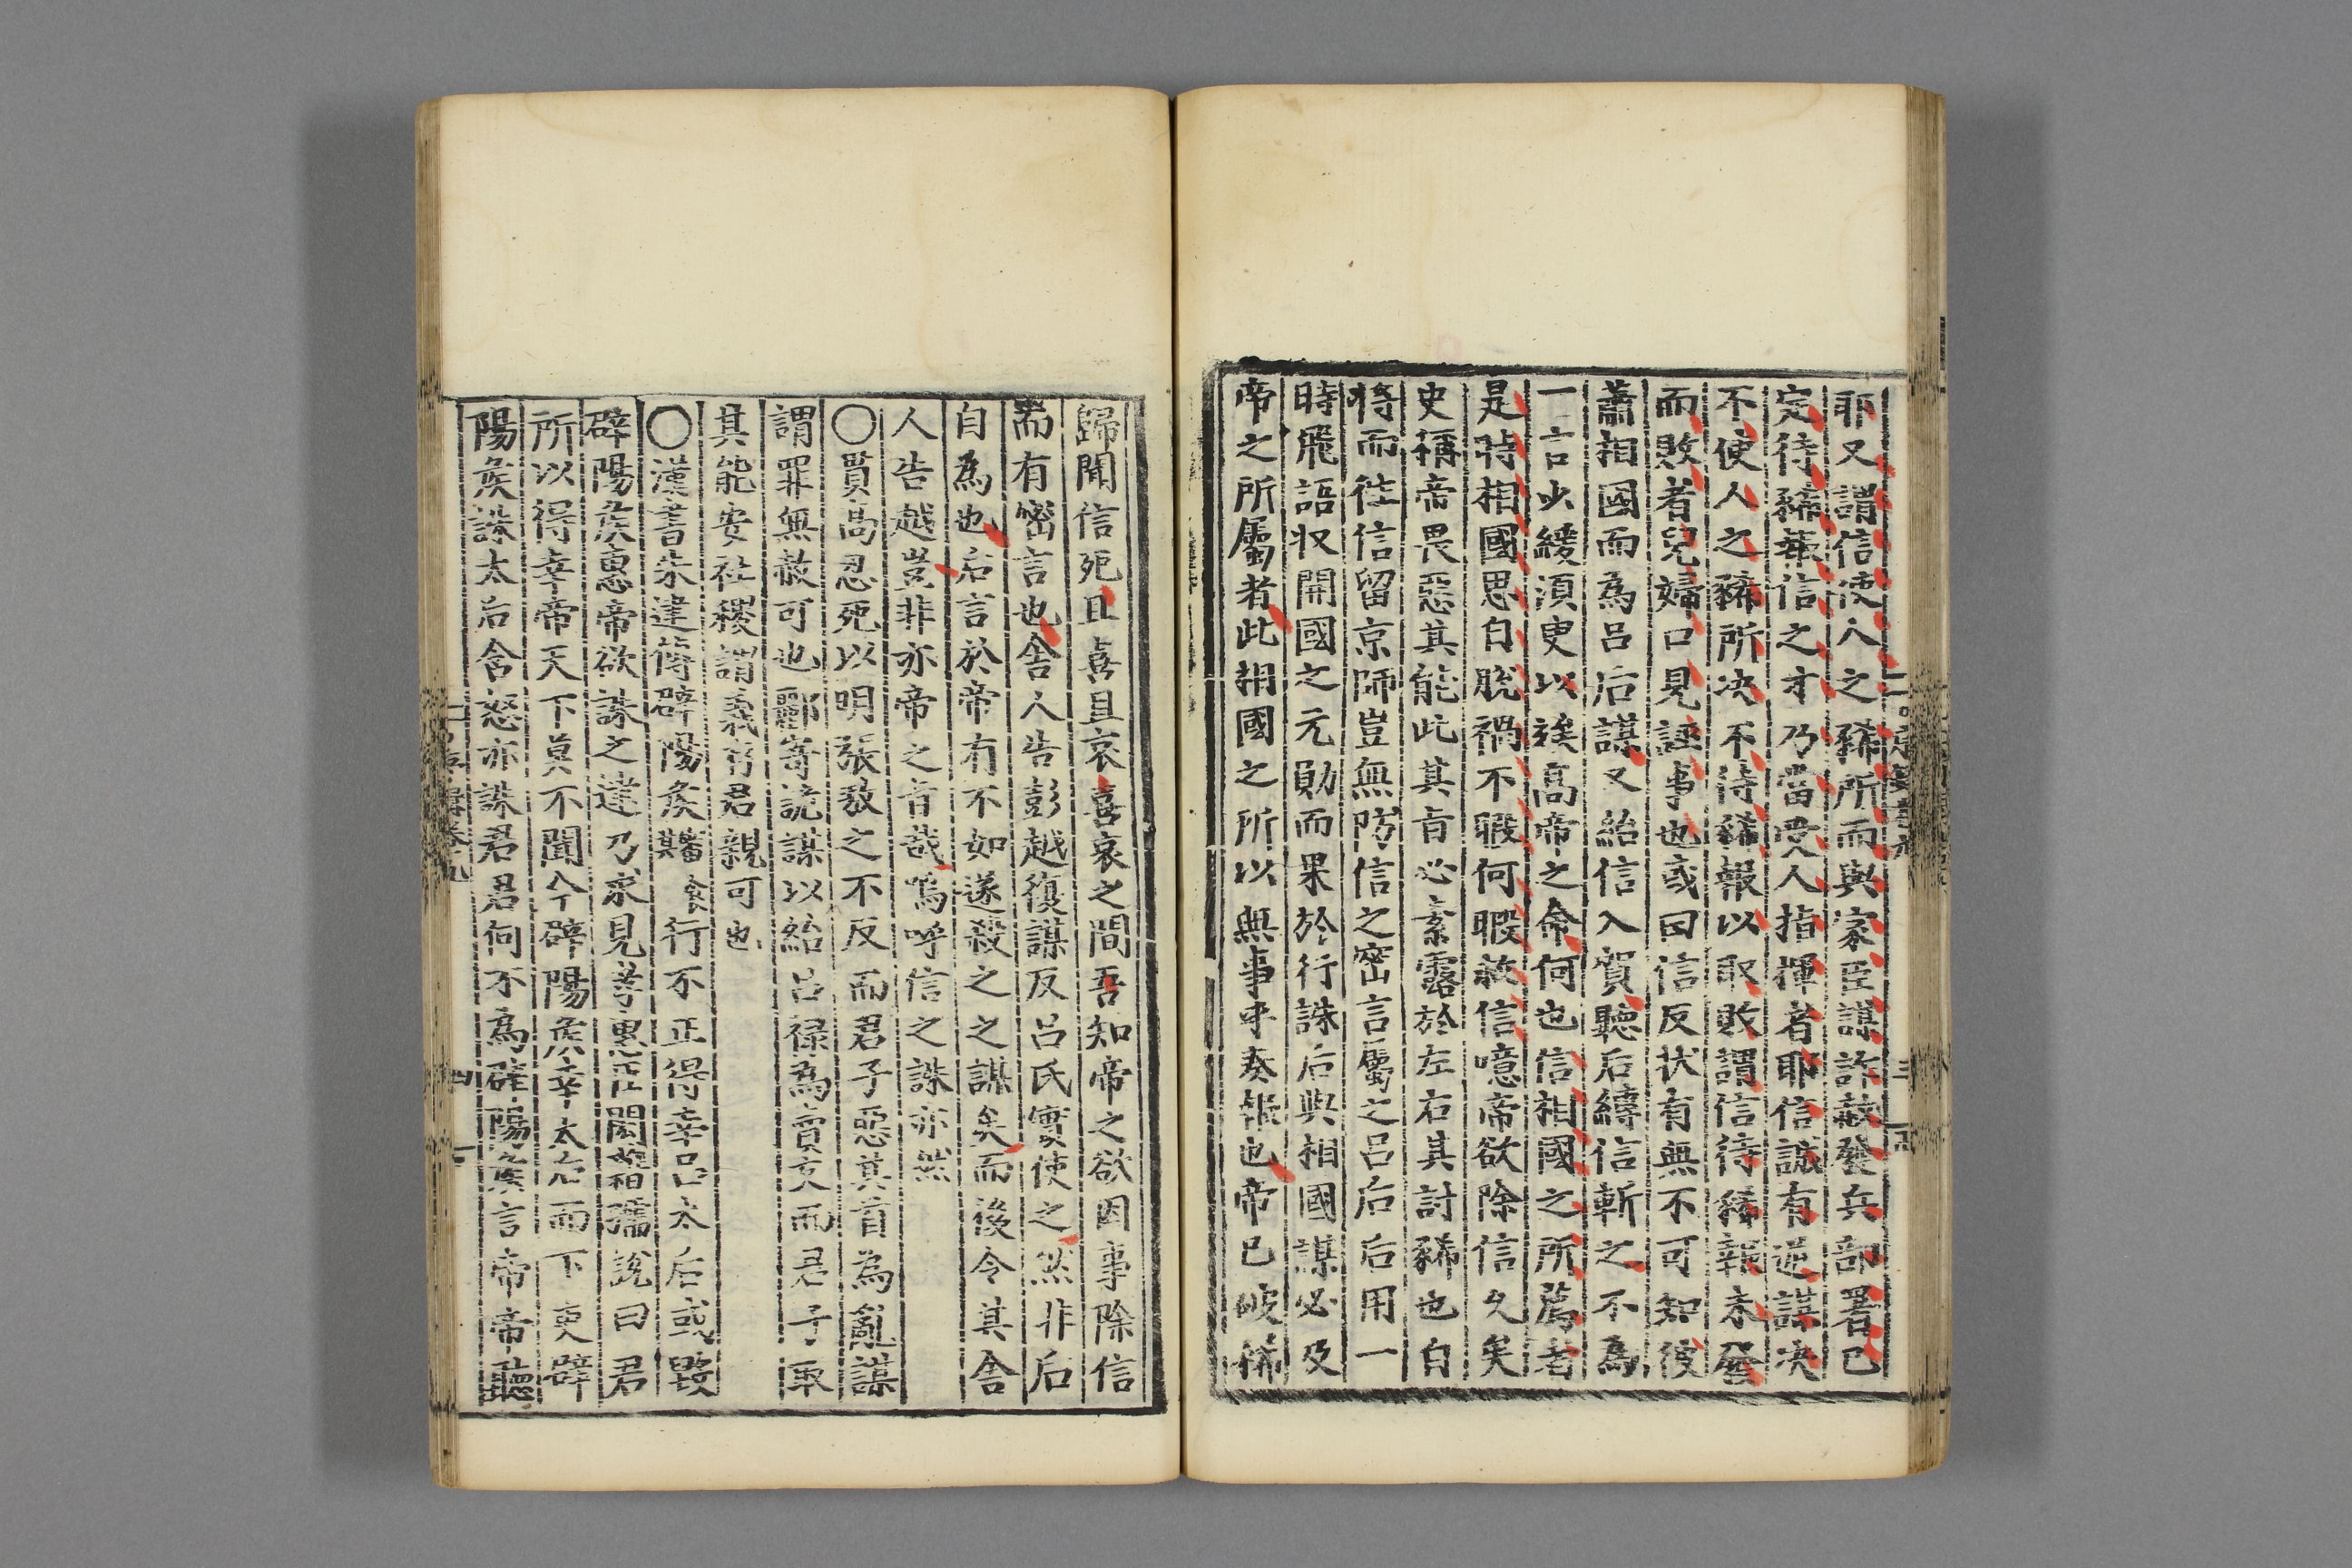 耶又謂信使人之豨所而與家臣謀詐赦發兵部署已
定待豨報信之才乃當受人指揮者耶信誠有逆謀决
不使人之豨所决不待豨報以取敗謂信待豨報未發
而敗者兒婦口見誣事也或曰信反状有無不可知後
蕭相國而為呂后謀又紿信入賀聽后縛信斬之不為
一言少緩湏臾以待高帝之命何也信相國之所薦者
是時相國思自脫禍不暇何暇救信噫帝欲除信久矣
史稱帝畏惡其能此其肯必素露於左右其討豨也自
將而徃信留京師豈無防信之密言屬之呂后后用一
時飛語収開國之元勛而果於行誅后與相國謀必及
帝之所屬者此相國之所以無事乎奏報也帝已破豨
歸聞信死且喜且哀喜哀之間吾知帝之欲因事除信
而有密言也舍人告彭越復謀反呂氏實使之然非后
自為也后言於帝有不如遂殺之之謀矣而後令其舍
人告越豈非亦帝之旨哉嗚呼信之誅亦然
〇貫高忍死以明張敖之不反而君子惡其首為亂謀
謂罪無赦可也酈寄詭謀以紿呂禄為賣友而君子取
其能安社稷謂義存君親可也
〇漢書朱建傳辟陽矦行不正得幸呂太后或毀
辟陽矦惠帝欲誅之建乃求見孝惠臣閎籍孺說曰君
所以得幸帝天下莫不聞今辟陽矦幸太后而下吏辟
陽矦誅太后含怒亦誅君君何不為辟陽矦言帝帝聽